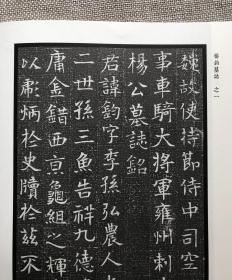 楊鈞墓誌 之一
魏故使持節侍中司空
事車騎大將軍雍州刺
楊公墓誌銘
君諱鈞字季孫弘農人
二世孫三魚告祥九德
庸金錯西京龜組之輝
以肅炳於史牘於茲不